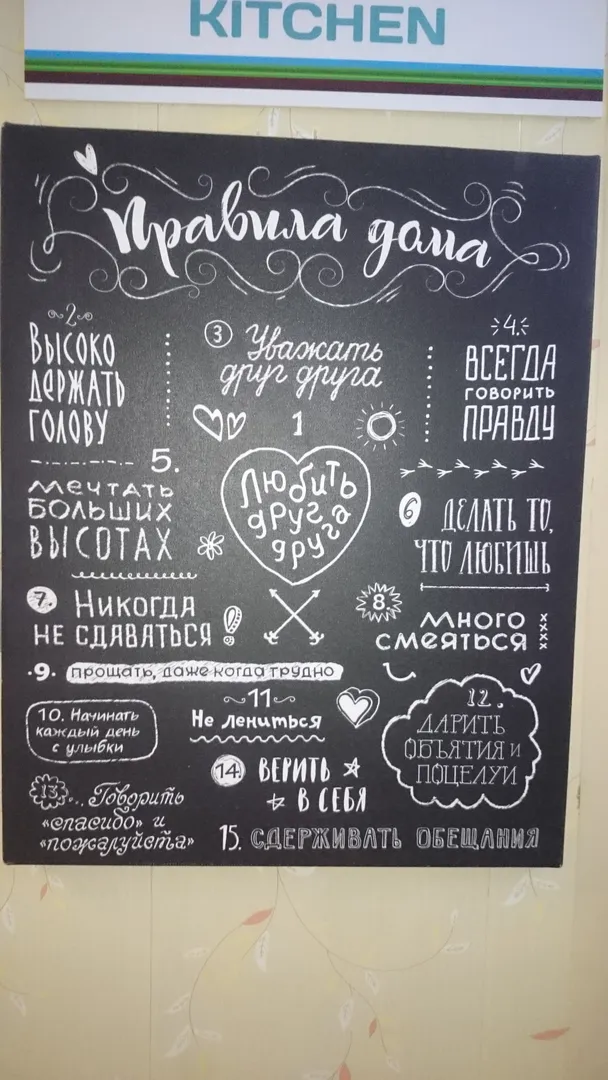 KITCHEN
Правила дома
2
ВЫСОКО
ДЕРЖАТЬ
ГОЛОВУ
3 Уважать
друг друга
4.
ВСЕГДА
ГОВОРИТЬ
ПРАВДУ
1
Любить
друг
друга
5.
мечтать
больших
высотах
6 ДЕЛАТЬ ТО,
ЧТО ЛЮБИШЬ
7. Никогда
не сдаваться
8. много
смеяться
9. прощать, даже когда трудно
10. Начинать
каждый день
с улыбки
11
Не лениться
12.
ДАРИТЬ
ОБЪЯТИЯ И
ПОЦЕЛУИ
13... Говорить
«спасибо» и
«пожалуйста»
14 ВЕРИТЬ
В СЕБЯ
15. СДЕРЖИВАТЬ ОБЕЩАНИЯ